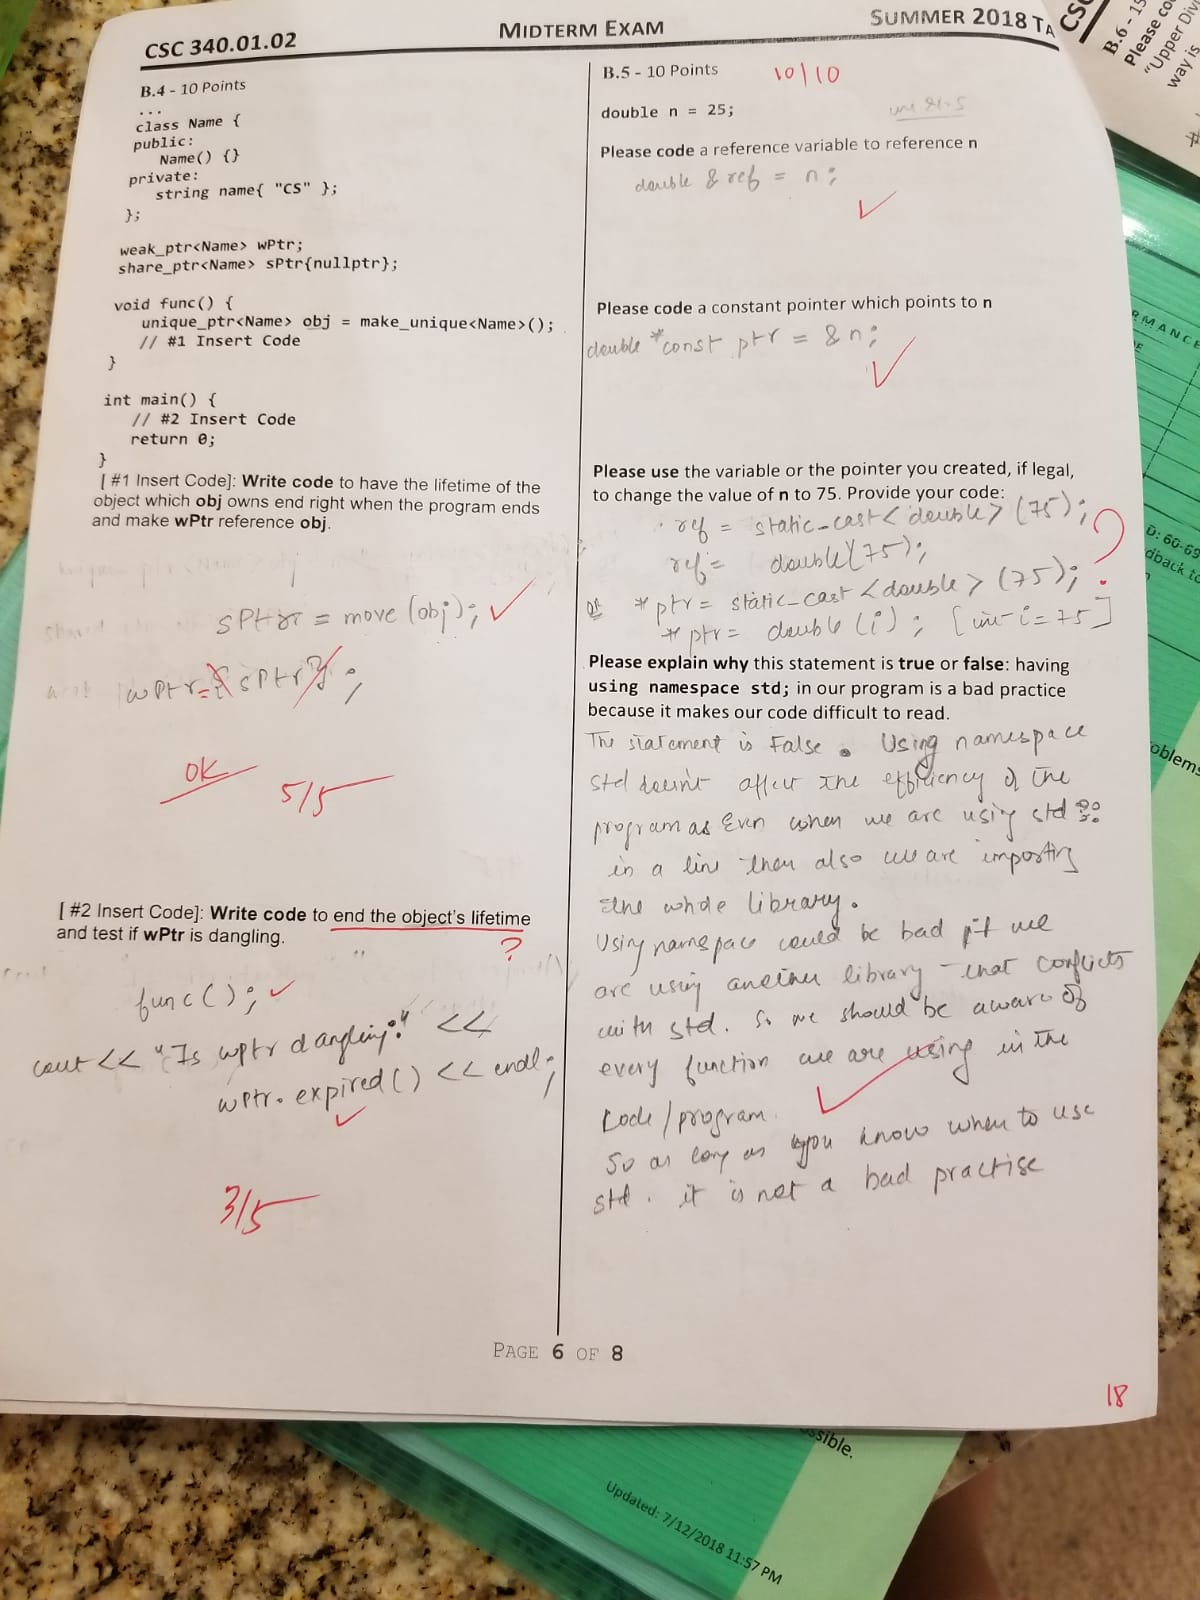 CSC 340.01.02
MIDTERM EXAM
SUMMER 2018 TA
B.4 - 10 Points
...
class Name {
public:
Name() {}
private:
string name{ "CS" };
};
weak_ptr<Name> wPtr;
share_ptr<Name> sPtr{nullptr};
void func() {
unique_ptr<Name> obj = make_unique<Name>();
// #1 Insert Code
}
int main() {
// #2 Insert Code
return 0;
}
[ #1 Insert Code]: Write code to have the lifetime of the
object which obj owns end right when the program ends
and make wPtr reference obj.
sPtr = move (obj);
wPtr = { sPtr };
OK
5/5
[ #2 Insert Code]: Write code to end the object's lifetime
and test if wPtr is dangling.
?
func();
cout << "Is wptr dangling:" <<
wptr.expired() << endl;
3/5
B.5 - 10 Points
10/10
double n = 25;
Please code a reference variable to reference n
double & ref = n;
Please code a constant pointer which points to n
double *const ptr = &n;
Please use the variable or the pointer you created, if legal,
to change the value of n to 75. Provide your code:
ref = static_cast<double> (75);
ref = double(75);
?
or *ptr = static_cast <double> (75);
*ptr = double (i); [int i = 75]
Please explain why this statement is true or false: having
using namespace std; in our program is a bad practice
because it makes our code difficult to read.
The statement is False. Using namespace
std doesn't affect the efficiency of the
program as Even when we are using std ::
in a line then also we are importing
the whole library.
Using namespace could be bad if we
are using another library that conflicts
with std. So we should be aware of
every function we are using in the
Code/program.
So as long as you know when to use
std. it is not a bad practise
PAGE 6 OF 8
18
CSC
B.6 - 15
Please co
"Upper Div
way is
#
RMANCE
D: 60-69
dback to
oblems
ssible.
Updated: 7/12/2018 11:57 PM